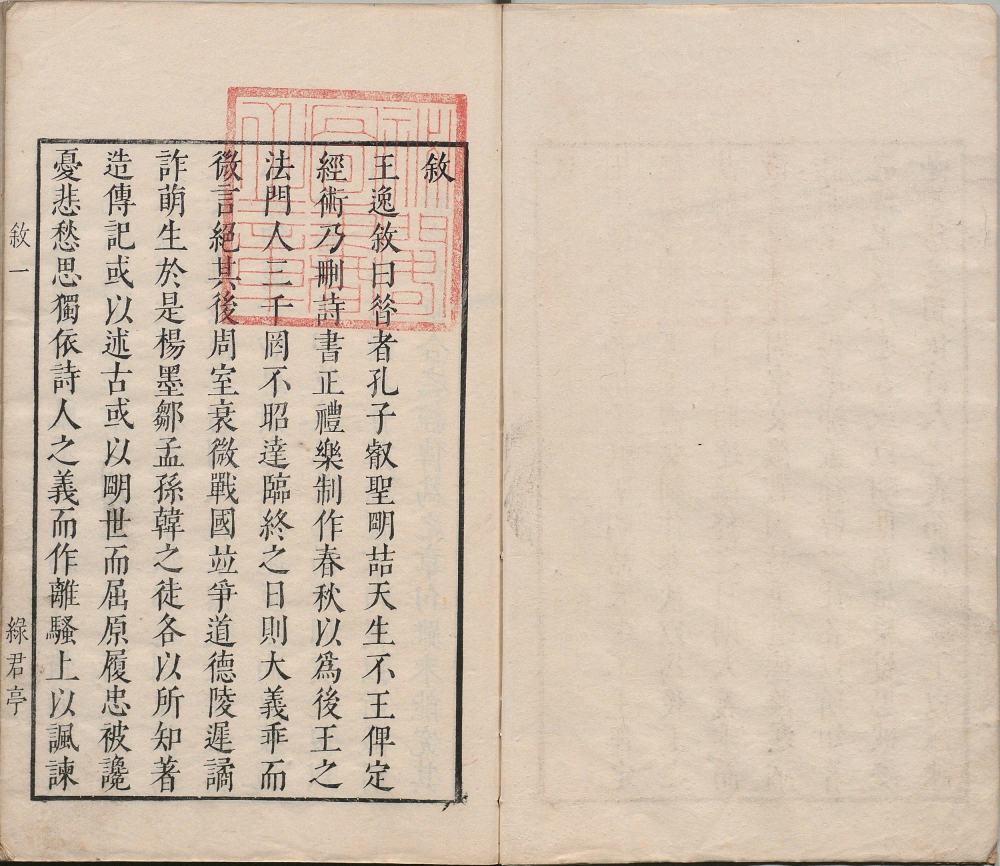 敘
王逸敘曰昝者孔子叡聖朙喆天生不王俾定
經術乃刪詩書正禮樂制作春秋以爲後王之
法門人三千罔不昭達臨終之日則大義乖而
微言絕其後周室衰微戰國並爭道德陵遲譎
詐萌生於是楊墨鄒孟孫韓之徒各以所知著
造傳記或以述古或以朙世而屈原履忠被讒
憂悲愁思獨依詩人之義而作離騷上以諷諫
敘一
綠君亭